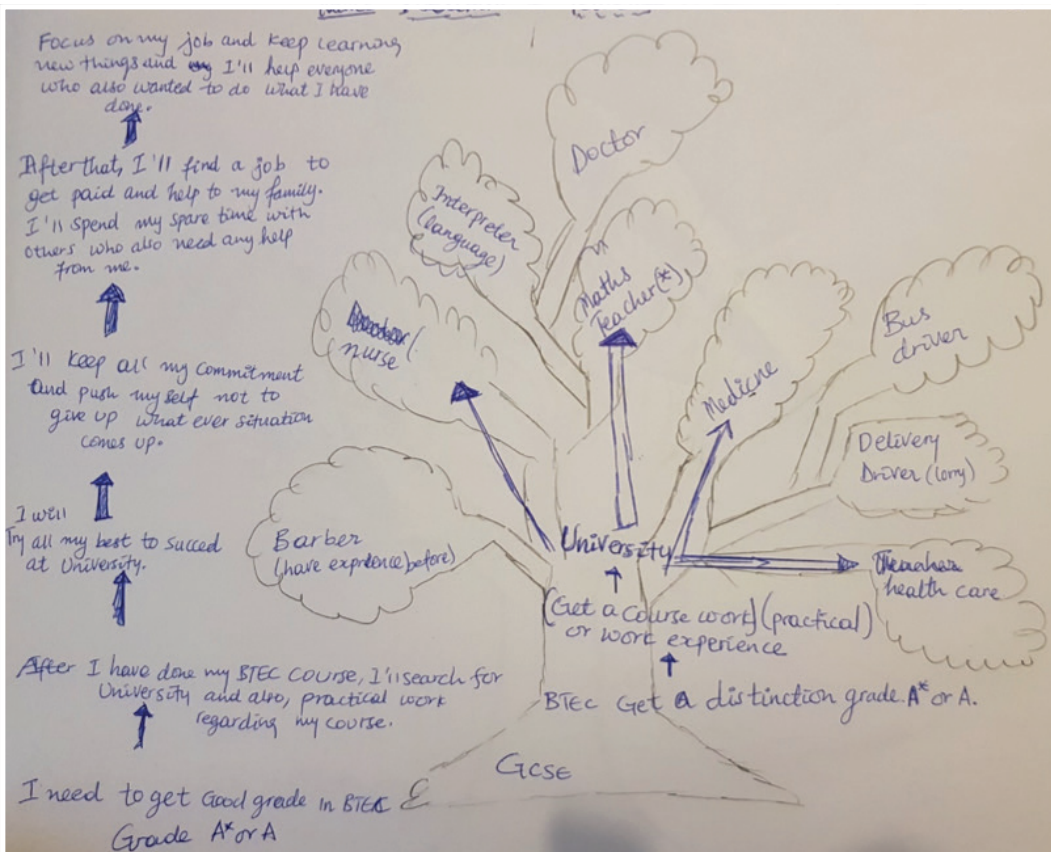 Focus on my job and keep learning
new things and I'll help everyone
who also wanted to do what I have
done.
After that, I'll find a job to
get paid and help to my family.
I'll spend my spare time with
others who also need any help
from me.
I'll keep all my commitment
and push my self not to
give up what ever situation
comes up.
I will
Try all my best to succed
at University.
After I have done my BTEC COURSE, I'll search for
University and also, practical work
regarding my course.
I need to get Good grade in BTEC
Grade A* or A
Doctor
Interpreter
(language)
Maths
Teacher(*)
nurse
Medicne
Bus
driver
Delivery
Driver (lorry)
Barber
(have exprience before)
University
health care
(Get a course work) (practical)
or work experience
BTEC Get a distinction grade A* or A.
GCSE